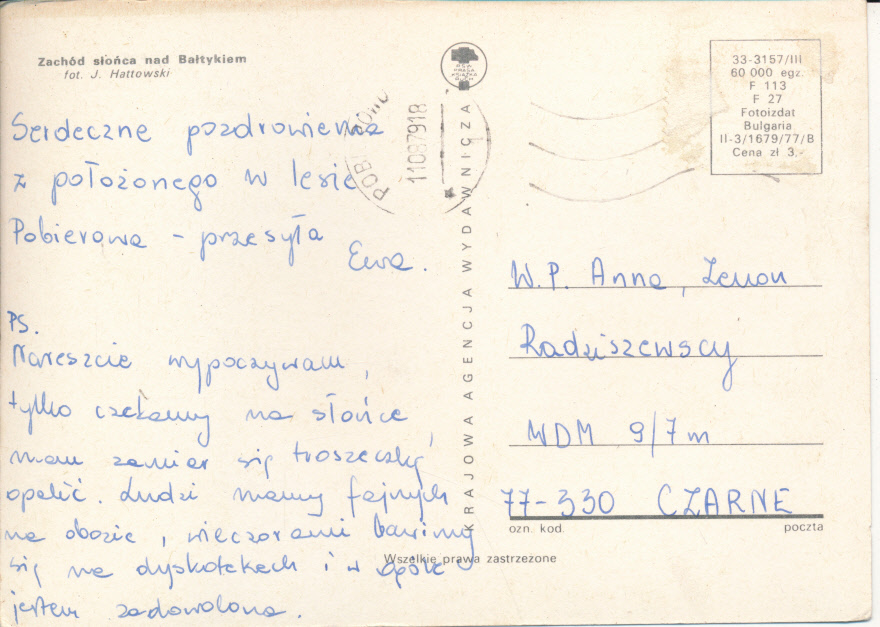 Zachód słońca nad Bałtykiem
fot. J. Hattowski
Serdeczne pozdrowienia
z położonego w lesie
Pobierowa - przesyła
Ewa.
PS.
Nareszcie wypoczywam,
tylko czekamy na słońce,
mam zamiar się troszeczkę
opalić. Ludzi mamy fajnych
na obozie, wieczorami bawimy
się na dyskotekach i w ogóle
jestem zadowolona.
KRAJOWA AGENCJA WYDAWNICZA
RSW
PRASA
KSIĄŻKA
RUCH
11087918
33-3157/III
60 000 egz.
F 113
F 27
Fotoizdat
Bulgaria
II-3/1679/77/B
Cena zł 3,-
W.P. Anna, Zenon
Radziszewscy
WDM 9/7m
77-330 CZARNE
ozn. kod. poczta
Wszelkie prawa zastrzeżone